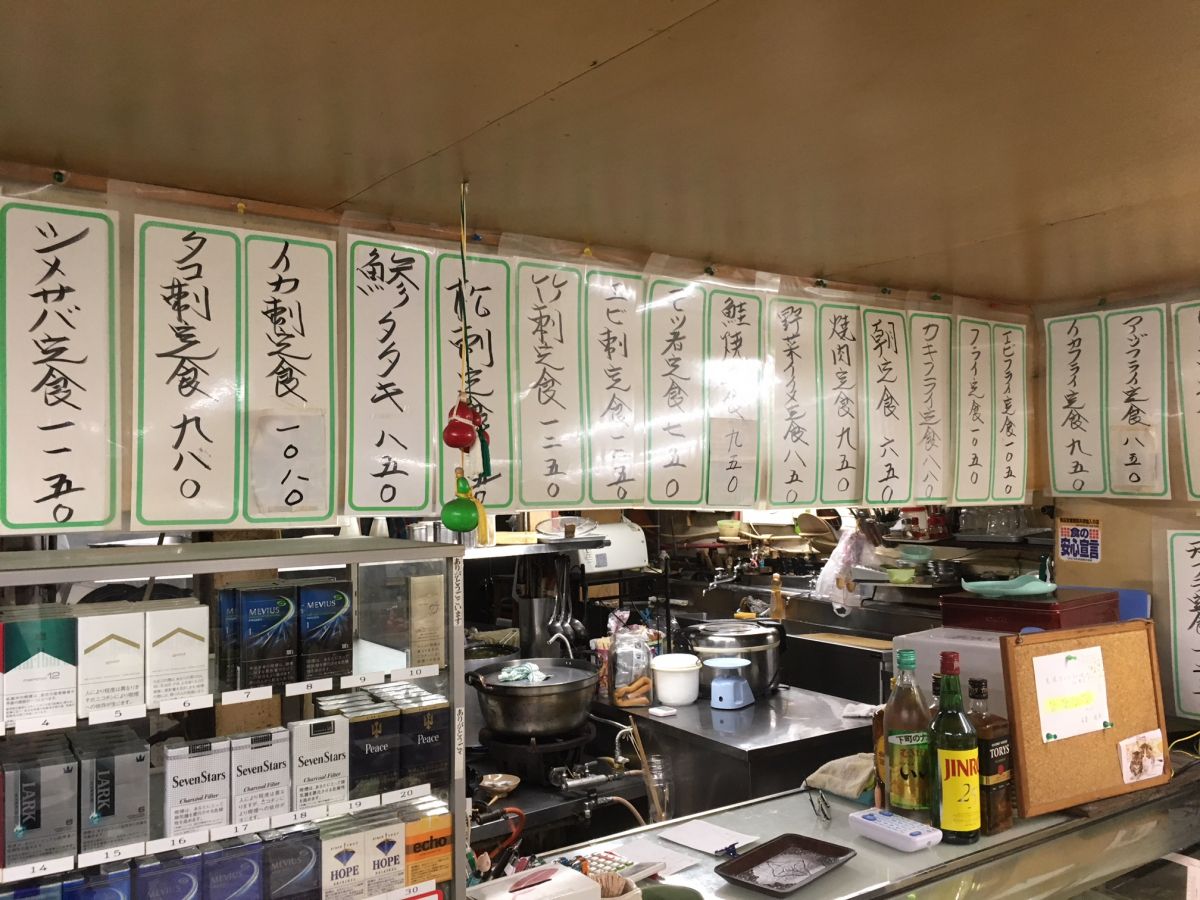 ツメサバ定食 一一五〇
タコ刺定食 九八〇
イカ刺定食 一〇八〇
鯵タタキ 八五〇
松刺定食
竹刺定食 一二五〇
エビ刺定食 一二五〇
モツ煮定食 七五〇
鮭焼 九五〇
野菜イタメ定食 八五〇
焼肉定食 九五〇
朝定食 六五〇
カキフライ定食 八八〇
フライ定食 一〇五〇
エビフライ定食 一〇五〇
イカフライ定食 九五〇
アジフライ定食 八五〇
食の
安心宣言
ありがとうございます
MEVIUS
MEVIUS
7
8
9
10
12
4
5
6
LARK
LARK
SevenStars
Charcoal Filter
SevenStars
Charcoal Filter
SevenStars
Charcoal Filter
Peace
Peace
14
15
16
17
18
19
20
MEVIUS
MEVIUS
MEVIUS
HOPE
HOPE
echo
30
JINRO
TORYS